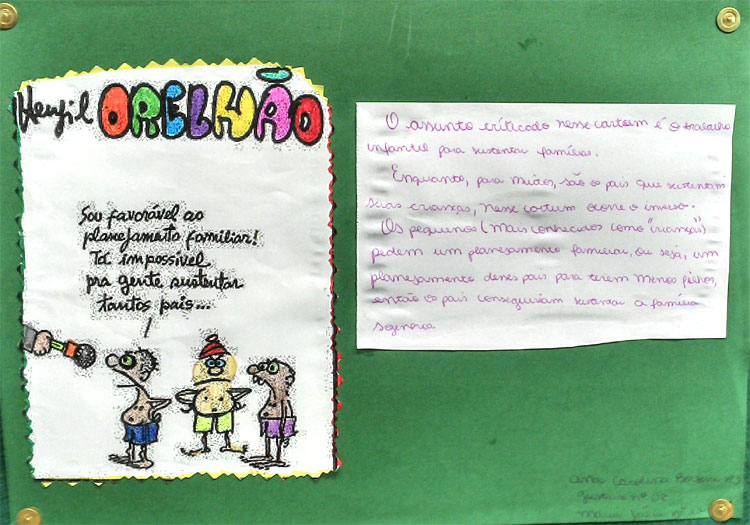 Henfil ORELHÃO
Sou favorável ao
planejamento familiar!
Tá impossível
pra gente sustentar
tantos pais...
O assunto criticado nesse cartum é o trabalho
infantil para sustentar famílias.
Enquanto, para muitos, são os pais que sustentam
suas crianças, nesse cartum ocorre o inverso.
Os pequenos (mais conhecidos como "crianças")
pedem um planejamento familiar, ou seja, um
planejamento desses pais para terem menos filhos,
então os pais conseguiriam sustentar a família
Ana Carolina